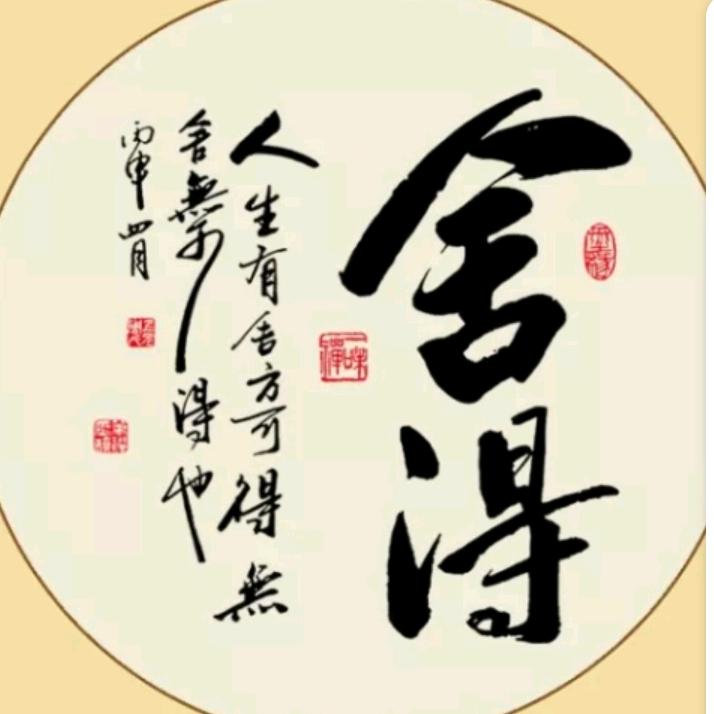 舍得
人生有舍方可得無
舍無所得也
丙申四月